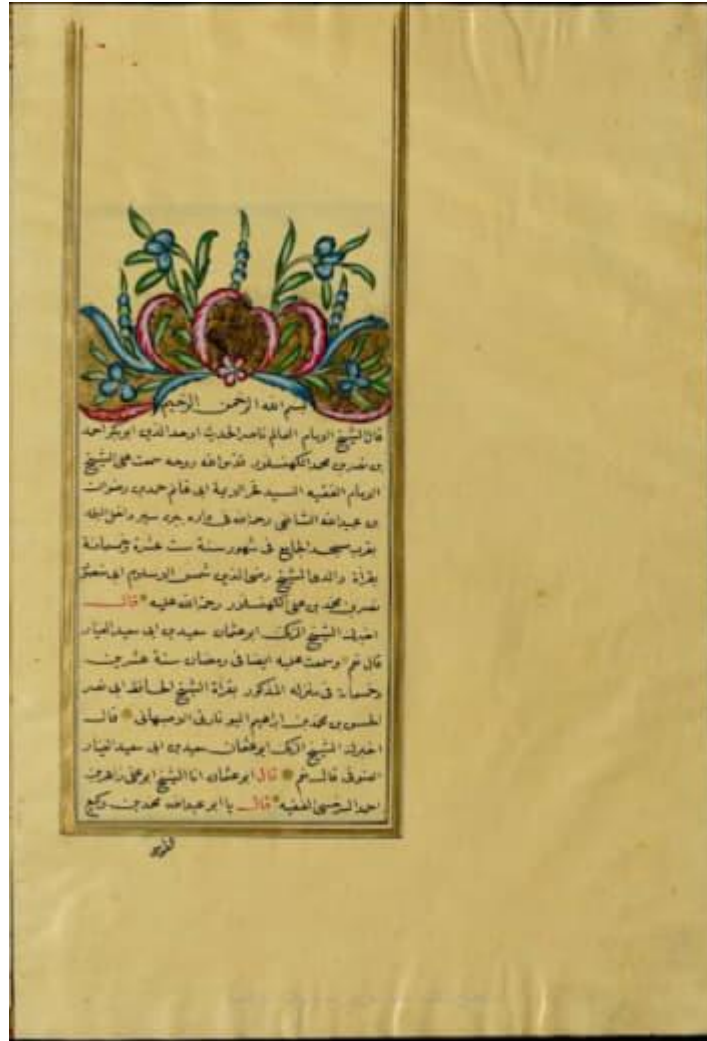 بسم الله الرحمن الرحيم
قال الشيخ الامام العالم ناصر الحديث اوحد الدين ابوبكر احمد
بن نصر بن محمد قدس الله روحه سمعت على الشيخ
الامام الفقيه السيد فخر الايمة ابى غانم حمد بن رضوان
بن عبيدالله الشافعى رحمه الله فى داره
بقرب مسجد الجامع فى شهور سنة ست عشرة وخمسمائة
بقرأة والدى الشيخ رضى الدين شمس الاسلام ابى
نصر بن محمد بن على رحمة الله عليه قال
اخبرك الشيخ الزكى ابو عثمان سعيد بن ابى سعيد العيار
قال نعم وسمعت عليه ايضا فى رمضان سنة عشرين
وخمسمائة فى منزله المذكور بقرأة الشيخ الحافظ ابى نصر
الحسن بن محمد بن ابراهيم اليونارتى الاصبهانى قال
اخبرك الشيخ الزكى ابو عثمان سعيد بن ابى سعيد العيار
الصوفى قال نعم قال ابو عثمان انا الشيخ ابو على زاهر بن
احمد السرخسى الفقيه قال نا ابو عبدالله محمد بن وكيع